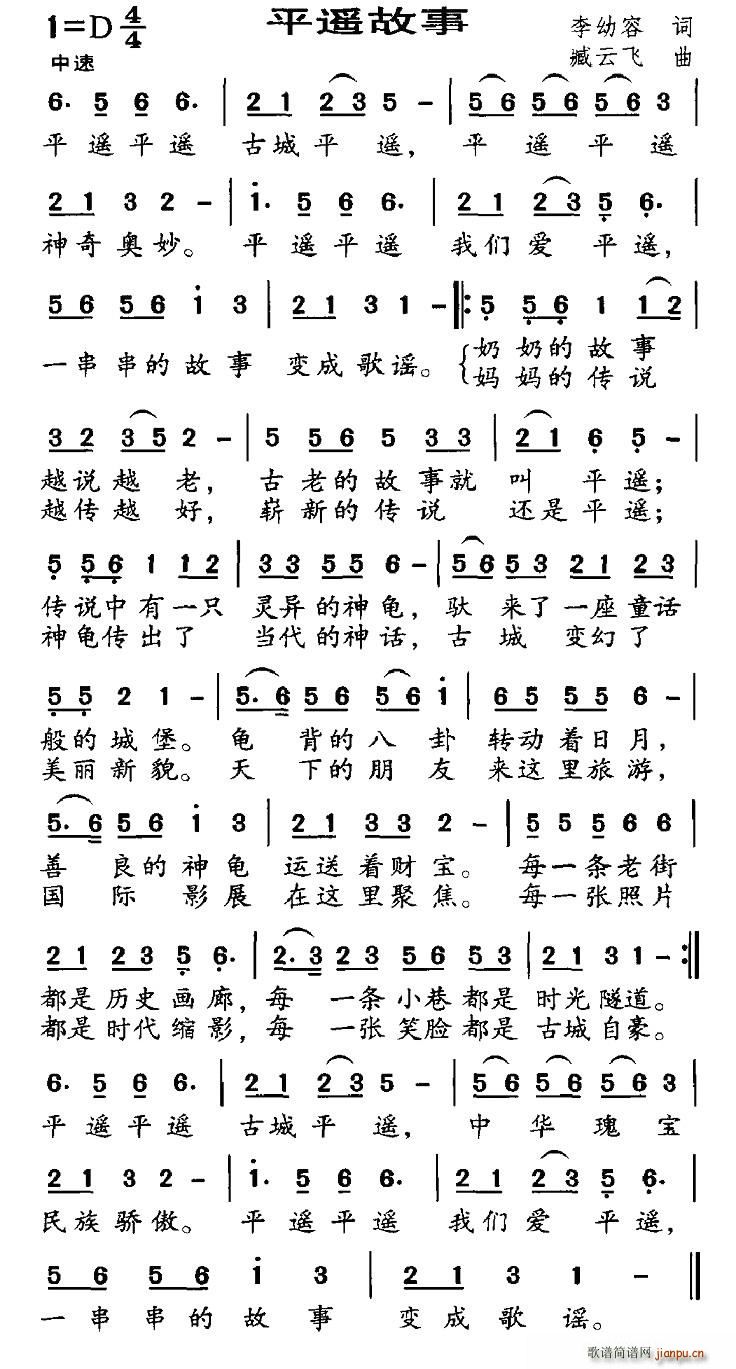 平遥故事
1=D 4/4
中速
李幼容 词
臧云飞 曲
6. 5 6 6. | 2 1 2 3 5 - | 5 6 5 6 5 6 3 |
平遥平遥 古城平遥, 平遥平遥
2 1 3 2 - | i. 5 6 6. | 2 1 2 3 5 6. |
神奇奥妙。 平遥平遥 我们爱平遥,
5 6 5 6 i 3 | 2 1 3 1 - |: 5 5 6 1 1 2 |
一串串的故事 变成歌谣。 {奶奶的故事
妈妈的传说
3 2 3 5 2 - | 5 5 6 5 3 3 | 2 1 6 5 - |
越说越老, 古老的故事就叫平遥;
越传越好, 崭新的传说还是平遥;
5 5 6 1 1 2 | 3 3 5 5 6 - | 5 6 5 3 2 1 2 3 |
传说中有一只 灵异的神龟, 驮来了一座童话
神龟传出了 当代的神话, 古城变幻了
5 5 2 1 - | 5. 6 5 6 5 6 i | 6 5 5 5 6 - |
般的城堡。 龟背的八卦 转动着日月,
美丽新貌。 天下的朋友 来这里旅游,
5. 6 5 6 i 3 | 2 1 3 3 2 - | 5 5 5 6 6 |
善良的神龟 运送着财宝。 每一条老街
国际影展 在这里聚焦。 每一张照片
2 1 2 3 5 6. | 2. 3 2 3 5 6 5 3 | 2 1 3 1 - :|
都是历史画廊, 每一条小巷都是 时光隧道。
都是时代缩影, 每一张笑脸都是 古城自豪。
6. 5 6 6. | 2 1 2 3 5 - | 5 6 5 6 5 6 3 |
平遥平遥 古城平遥, 中华瑰宝
2 1 3 2 - | i. 5 6 6. | 2 1 2 3 5 6. |
民族骄傲。 平遥平遥 我们爱平遥,
5 6 5 6 i 3 | 2 1 3 1 - ||
一串串的故事 变成歌谣。
歌谱简谱网 jianpu.cn